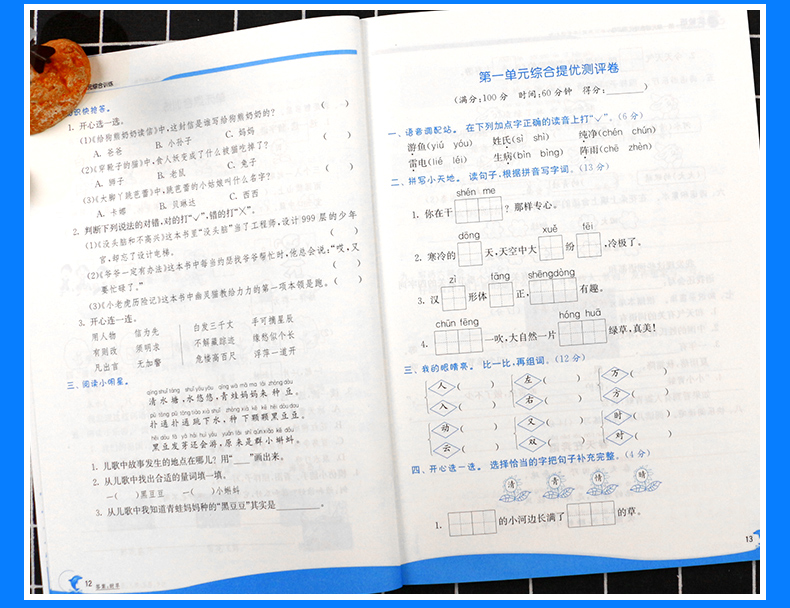 元综合训练
识快抢答。
1. 开心选一选。
(1)《给狗熊奶奶读信》中,这封信是谁写给狗熊奶奶的? (    )
A. 爸爸 B. 小孙子 C. 妈妈
(2)《穿靴子的猫》中,食人妖变成了什么被猫吃掉了? (    )
A. 狮子 B. 老鼠 C. 兔子
(3)《大脚丫跳芭蕾》中,跳芭蕾的小姑娘叫什么名字? (    )
A. 卡娜 B. 贝琳达 C. 西西
2. 判断下列说法的对错,对的打“√”,错的打“×”。
(1)《没头脑和不高兴》这本书里“没头脑”当了工程师,设计999层的少年
宫,却忘了设计电梯。 (    )
(2)《爷爷一定有办法》这本书中每当约瑟找爷爷帮忙时,他总会说:“哎,又
要忙碌了。” (    )
(3)《小老虎历险记》这本书中幽灵猫教给力力的第一项本领是跑。 (    )
3. 开心连一连。
用人物 信为先 白发三千丈 手可摘星辰
有则改 须明求 不解藏踪迹 缘愁似个长
凡出言 无加警 危楼高百尺 浮萍一道开
三、阅读小明星。
qīng shuǐ táng shuǐ yōu yōu qīng wā mā ma lái zhòng dòu
清水塘,水悠悠,青蛙妈妈来种豆,
pū tōng pū tōng tiào xià shuǐ zhòng xià kē kē hēi dòu dou
扑通扑通跳下水,种下颗颗黑豆豆。
hēi dòu fā yá hái huì yóu yuán lái shì qún xiǎo kē dǒu
黑豆发芽还会游,原来是群小蝌蚪。
1. 儿歌中故事发生的地点在哪儿?用“___”画出来。
2. 从儿歌中找出合适的量词填一填。
一(    )黑豆豆 一(    )小蝌蚪
3. 从儿歌中我知道青蛙妈妈种的“黑豆豆”其实是________。
12
第一单元综合提优测评卷
(满分:100分 时间:60分钟 得分:______)
一、语音调配站。 在下列加点字正确的读音上打“√”。(6分)
游鱼(yiú yóu) 姓氏(sì shì) 纯净(chén chún)
雷电(lié léi) 生病(bìn bìng) 阵雨(chè zhèn)
二、拼写小天地。 读句子,根据拼音写字词。(13分)
shén me
1. 你在干 ? 那样专心。
dōng xuě fēi
2. 寒冷的 天,天空中大 纷 ,冷极了。
zì fāng shēngdòng
3. 汉 形体 正, 有趣。
chūn fēng hóng huā
4. 一吹,大自然一片 绿草,真美!
三、我的眼睛亮。 比一比,再组词。(12分)
人(    ) 左(    ) 万(    )
入(    ) 右(    ) 方(    )
动(    ) 又(    ) 时(    )
云(    ) 双(    ) 对(    )
四、开心选一选。 选择恰当的字把句子补充完整。(4分)
清 青 情 晴
1. 的小河边长满了 的草。
13